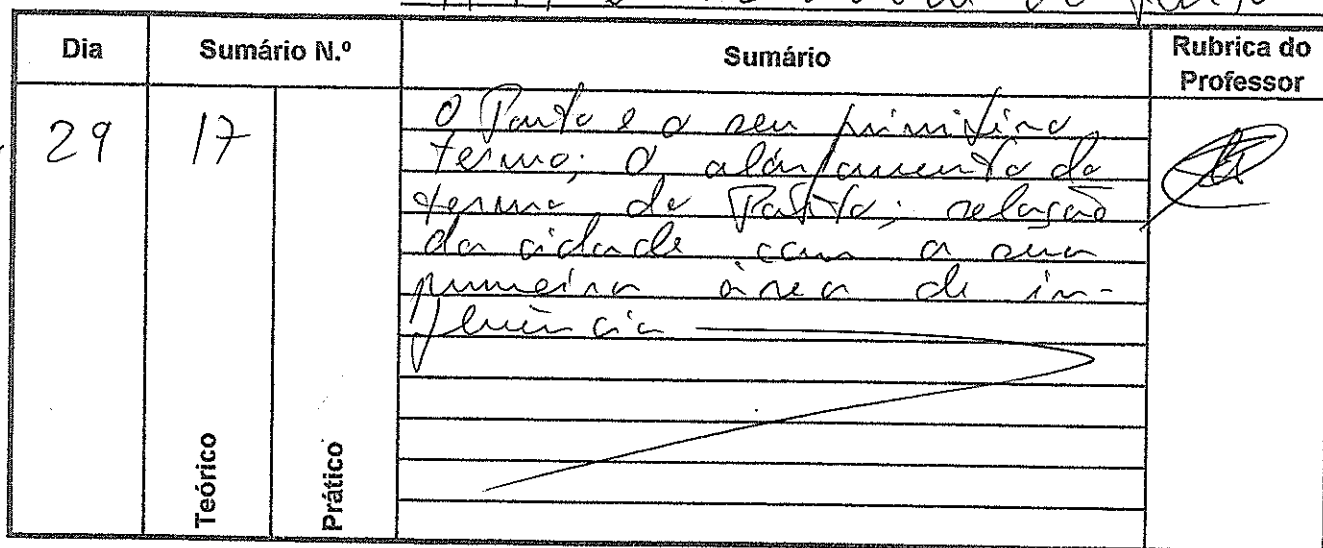 Dia
Sumário N.º
Sumário
Rubrica do
Professor
29
17
O Porto e o seu primitivo
termo; o alargamento do
termo do Porto; relação
da cidade com a sua
primeira área de in-
fluência
Teórico
Prático